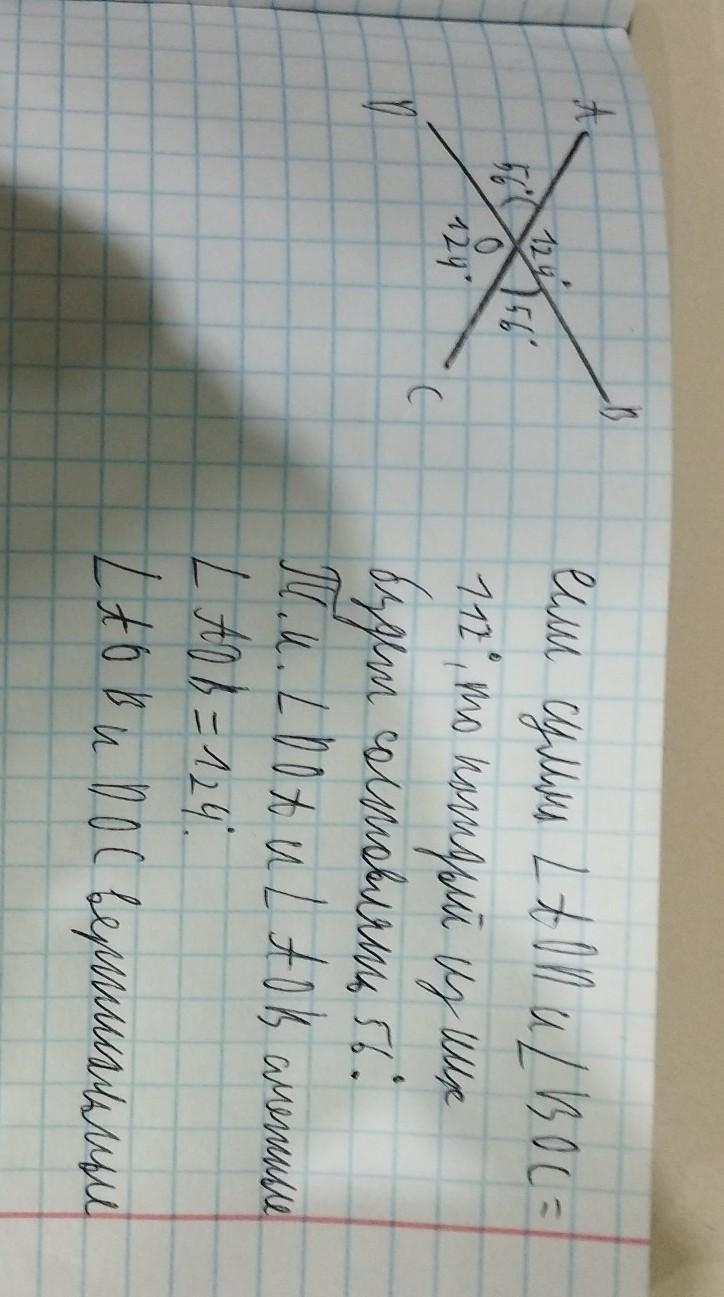 A
B
56°
124°
56°
O
124°
D
C
если сумма ∠AOD и ∠BOC =
112°, то каждый из них
будет составлять 56°.
Т.к. ∠DOA и ∠AOB смежные
∠AOB = 124°.
∠AOB и DOC вертикальные